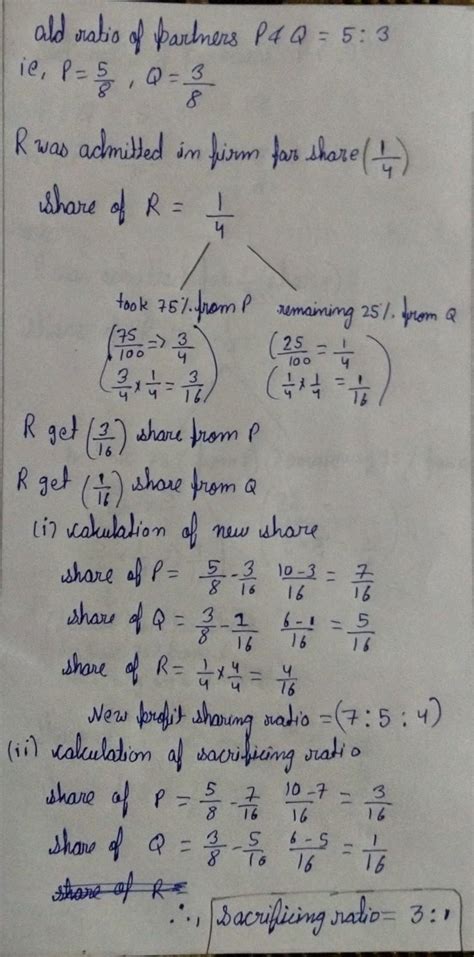 old ratio of partners P & Q = 5 : 3
ie, P = 5/8 , Q = 3/8
R was admitted in firm for share (1/4)
share of R = 1/4
took 75% from P remaining 25% from Q
(75/100 => 3/4) (25/100 = 1/4)
(3/4 × 1/4 = 3/16) (1/4 × 1/4 = 1/16)
R get (3/16) share from P
R get (1/16) share from Q
(i) calculation of new share
share of P = 5/8 - 3/16 10-3/16 = 7/16
share of Q = 3/8 - 1/16 6-1/16 = 5/16
share of R = 1/4 × 4/4 = 4/16
New profit sharing ratio = (7 : 5 : 4)
(ii) calculation of sacrificing ratio
share of P = 5/8 - 7/16 10-7/16 = 3/16
share of Q = 3/8 - 5/16 6-5/16 = 1/16
share of R =
∴, sacrificing ratio = 3 : 1